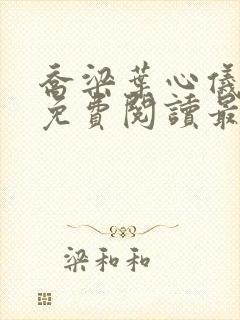 喬梁葉心儀
免費閱讀最
梁和和